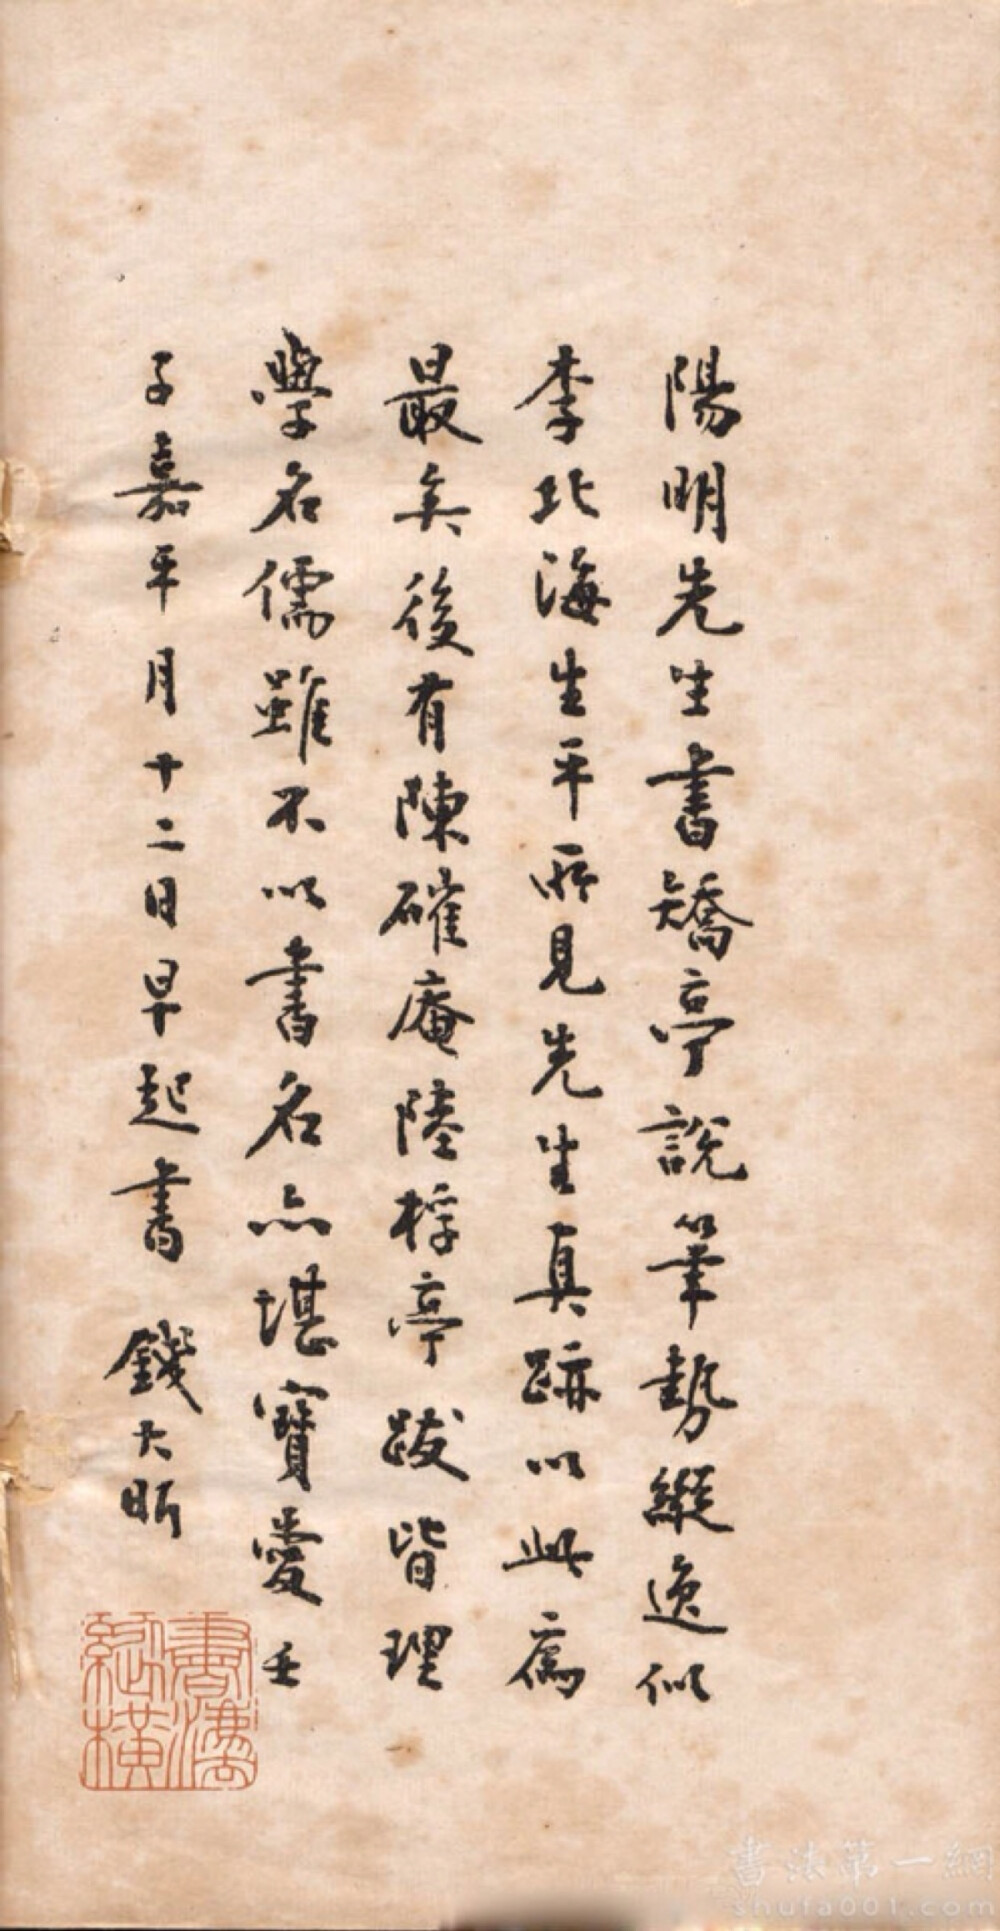 陽明先生書矯亭說筆勢縱逸似
李北海生平所見先生真跡以此為
最矣後有陳確庵陸桴亭跋皆理
學名儒雖不以書名亦堪寶愛壬
子嘉平月十二日早起書 錢大昕
書法縱橫
書法第一網
shufa001.com